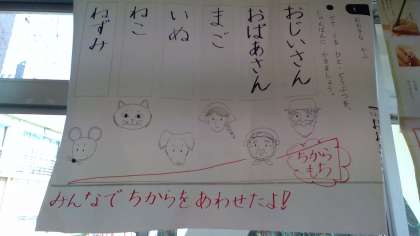 おじいさん
おばあさん
まご
いぬ
ねこ
ねずみ
ちから
もち
みんなで ちからをあわせたよ!